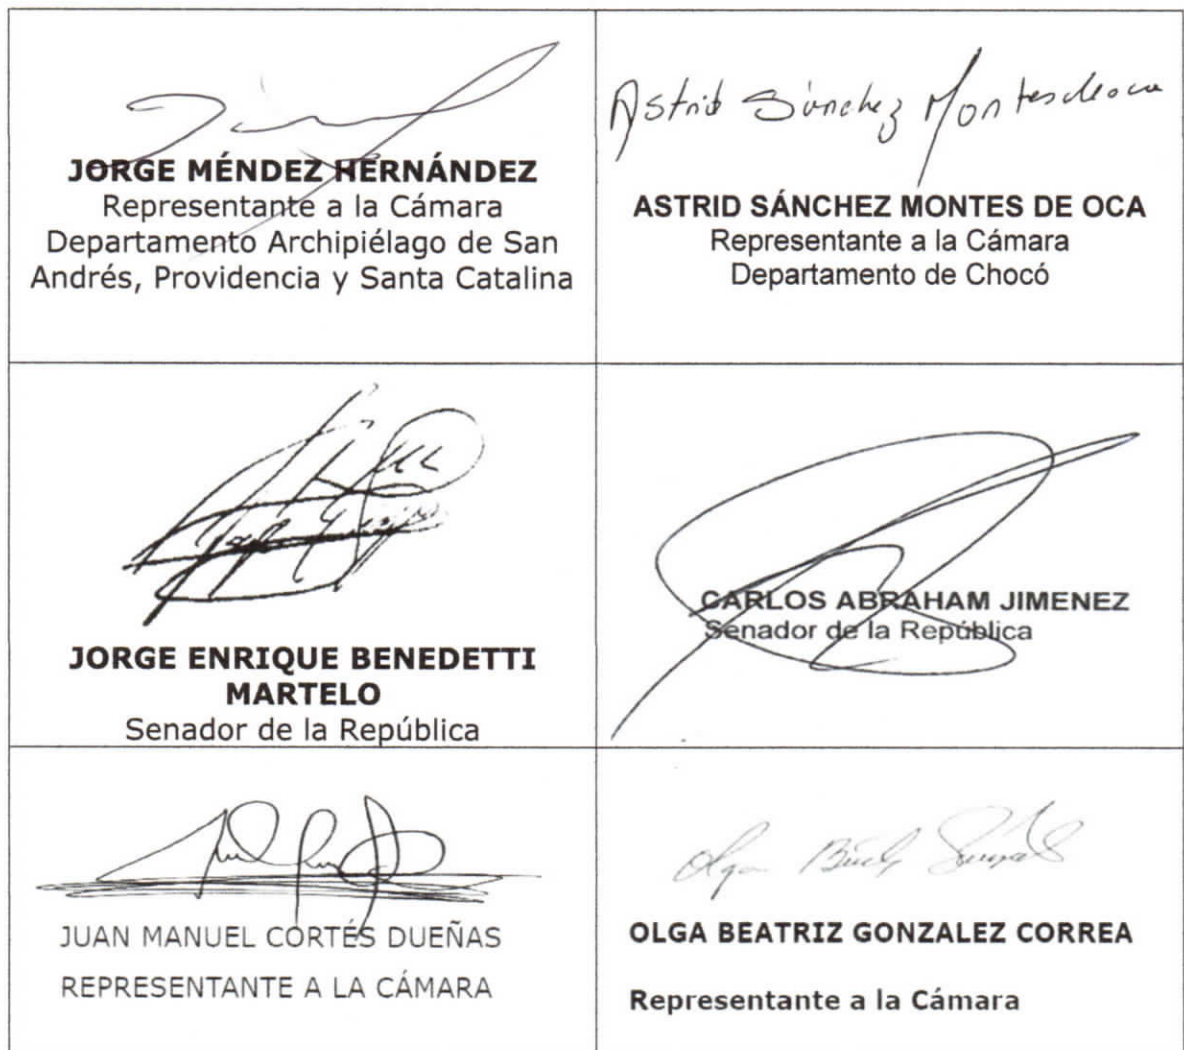 JORGE MÉNDEZ HERNÁNDEZ
Representante a la Cámara
Departamento Archipiélago de San
Andrés, Providencia y Santa Catalina
Astrid Sánchez Montesdeoca
ASTRID SÁNCHEZ MONTES DE OCA
Representante a la Cámara
Departamento de Chocó
JORGE ENRIQUE BENEDETTI
MARTELO
Senador de la República
CARLOS ABRAHAM JIMENEZ
Senador de la República
JUAN MANUEL CORTÉS DUEÑAS
REPRESENTANTE A LA CÁMARA
OLGA BEATRIZ GONZALEZ CORREA
Representante a la Cámara